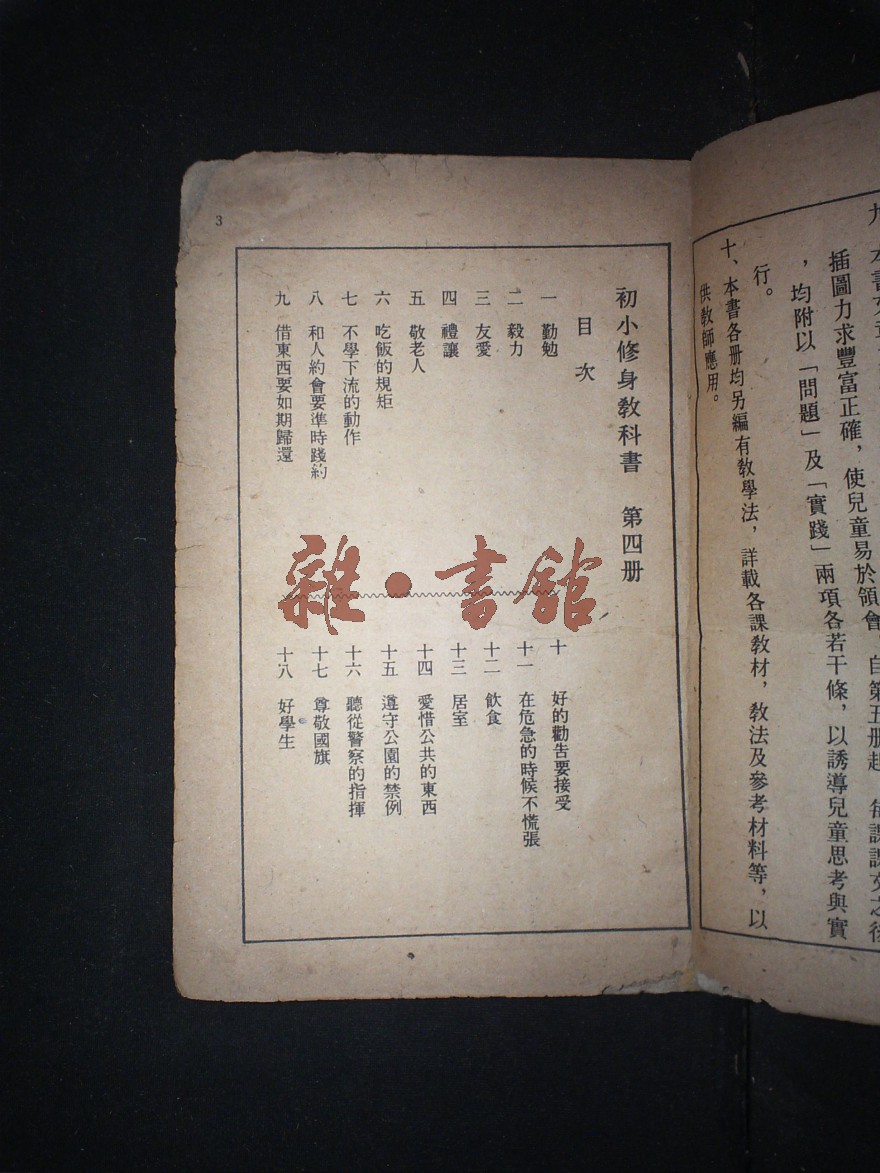 插圖力求豐富正確，使兒童易於領會
自第五册起
，均附以「問題」及「實踐」兩項各若干條，以誘導兒童思考與實
行。
十、本書各册均另編有教學法，詳載各課教材，教法及參考材料等，以
供教師應用。
3
初小修身教科書　第四册
目次
一　勤勉
二　毅力
三　友愛
四　禮讓
五　敬老人
六　吃飯的規矩
七　不學下流的動作
八　和人約會要準時踐約
九　借東西要如期歸還
十　好的勸告要接受
十一　在危急的時候不慌張
十二　飲食
十三　居室
十四　愛惜公共的東西
十五　遵守公園的禁例
十六　聽從警察的指揮
十七　尊敬國旗
十八　好學生
雜·書館